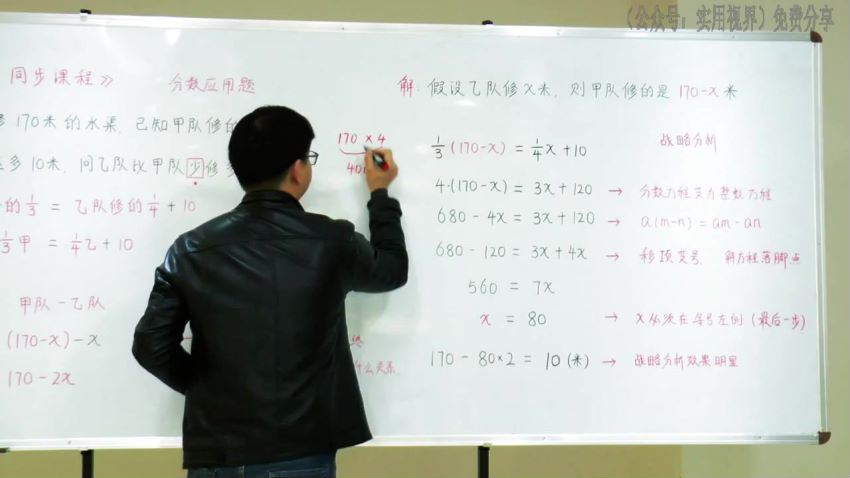 (公众号:实用视界)免费分享
同步课程》 分数应用题
170米的水渠,己知甲队修的
多10米,问乙队比甲队少修多
的1/3 = 乙队修的1/4 + 10
1/3甲 = 1/4乙 + 10
甲队 - 乙队
(170-x) - x
170 - 2x
170 × 4
什么关系.
解:假设乙队修x米,则甲队修的是170-x米
1/3(170-x) = 1/4x + 10 战略分析
4·(170-x) = 3x + 120 → 分数方程变为整数方程
680 - 4x = 3x + 120 → a(m-n) = am - an
680 - 120 = 3x + 4x → 移项变号, 解方程落脚点
560 = 7x
x = 80 → x必须在等号左侧(最后一步)
170 - 80×2 = 10(米) → 战略分析效果明显